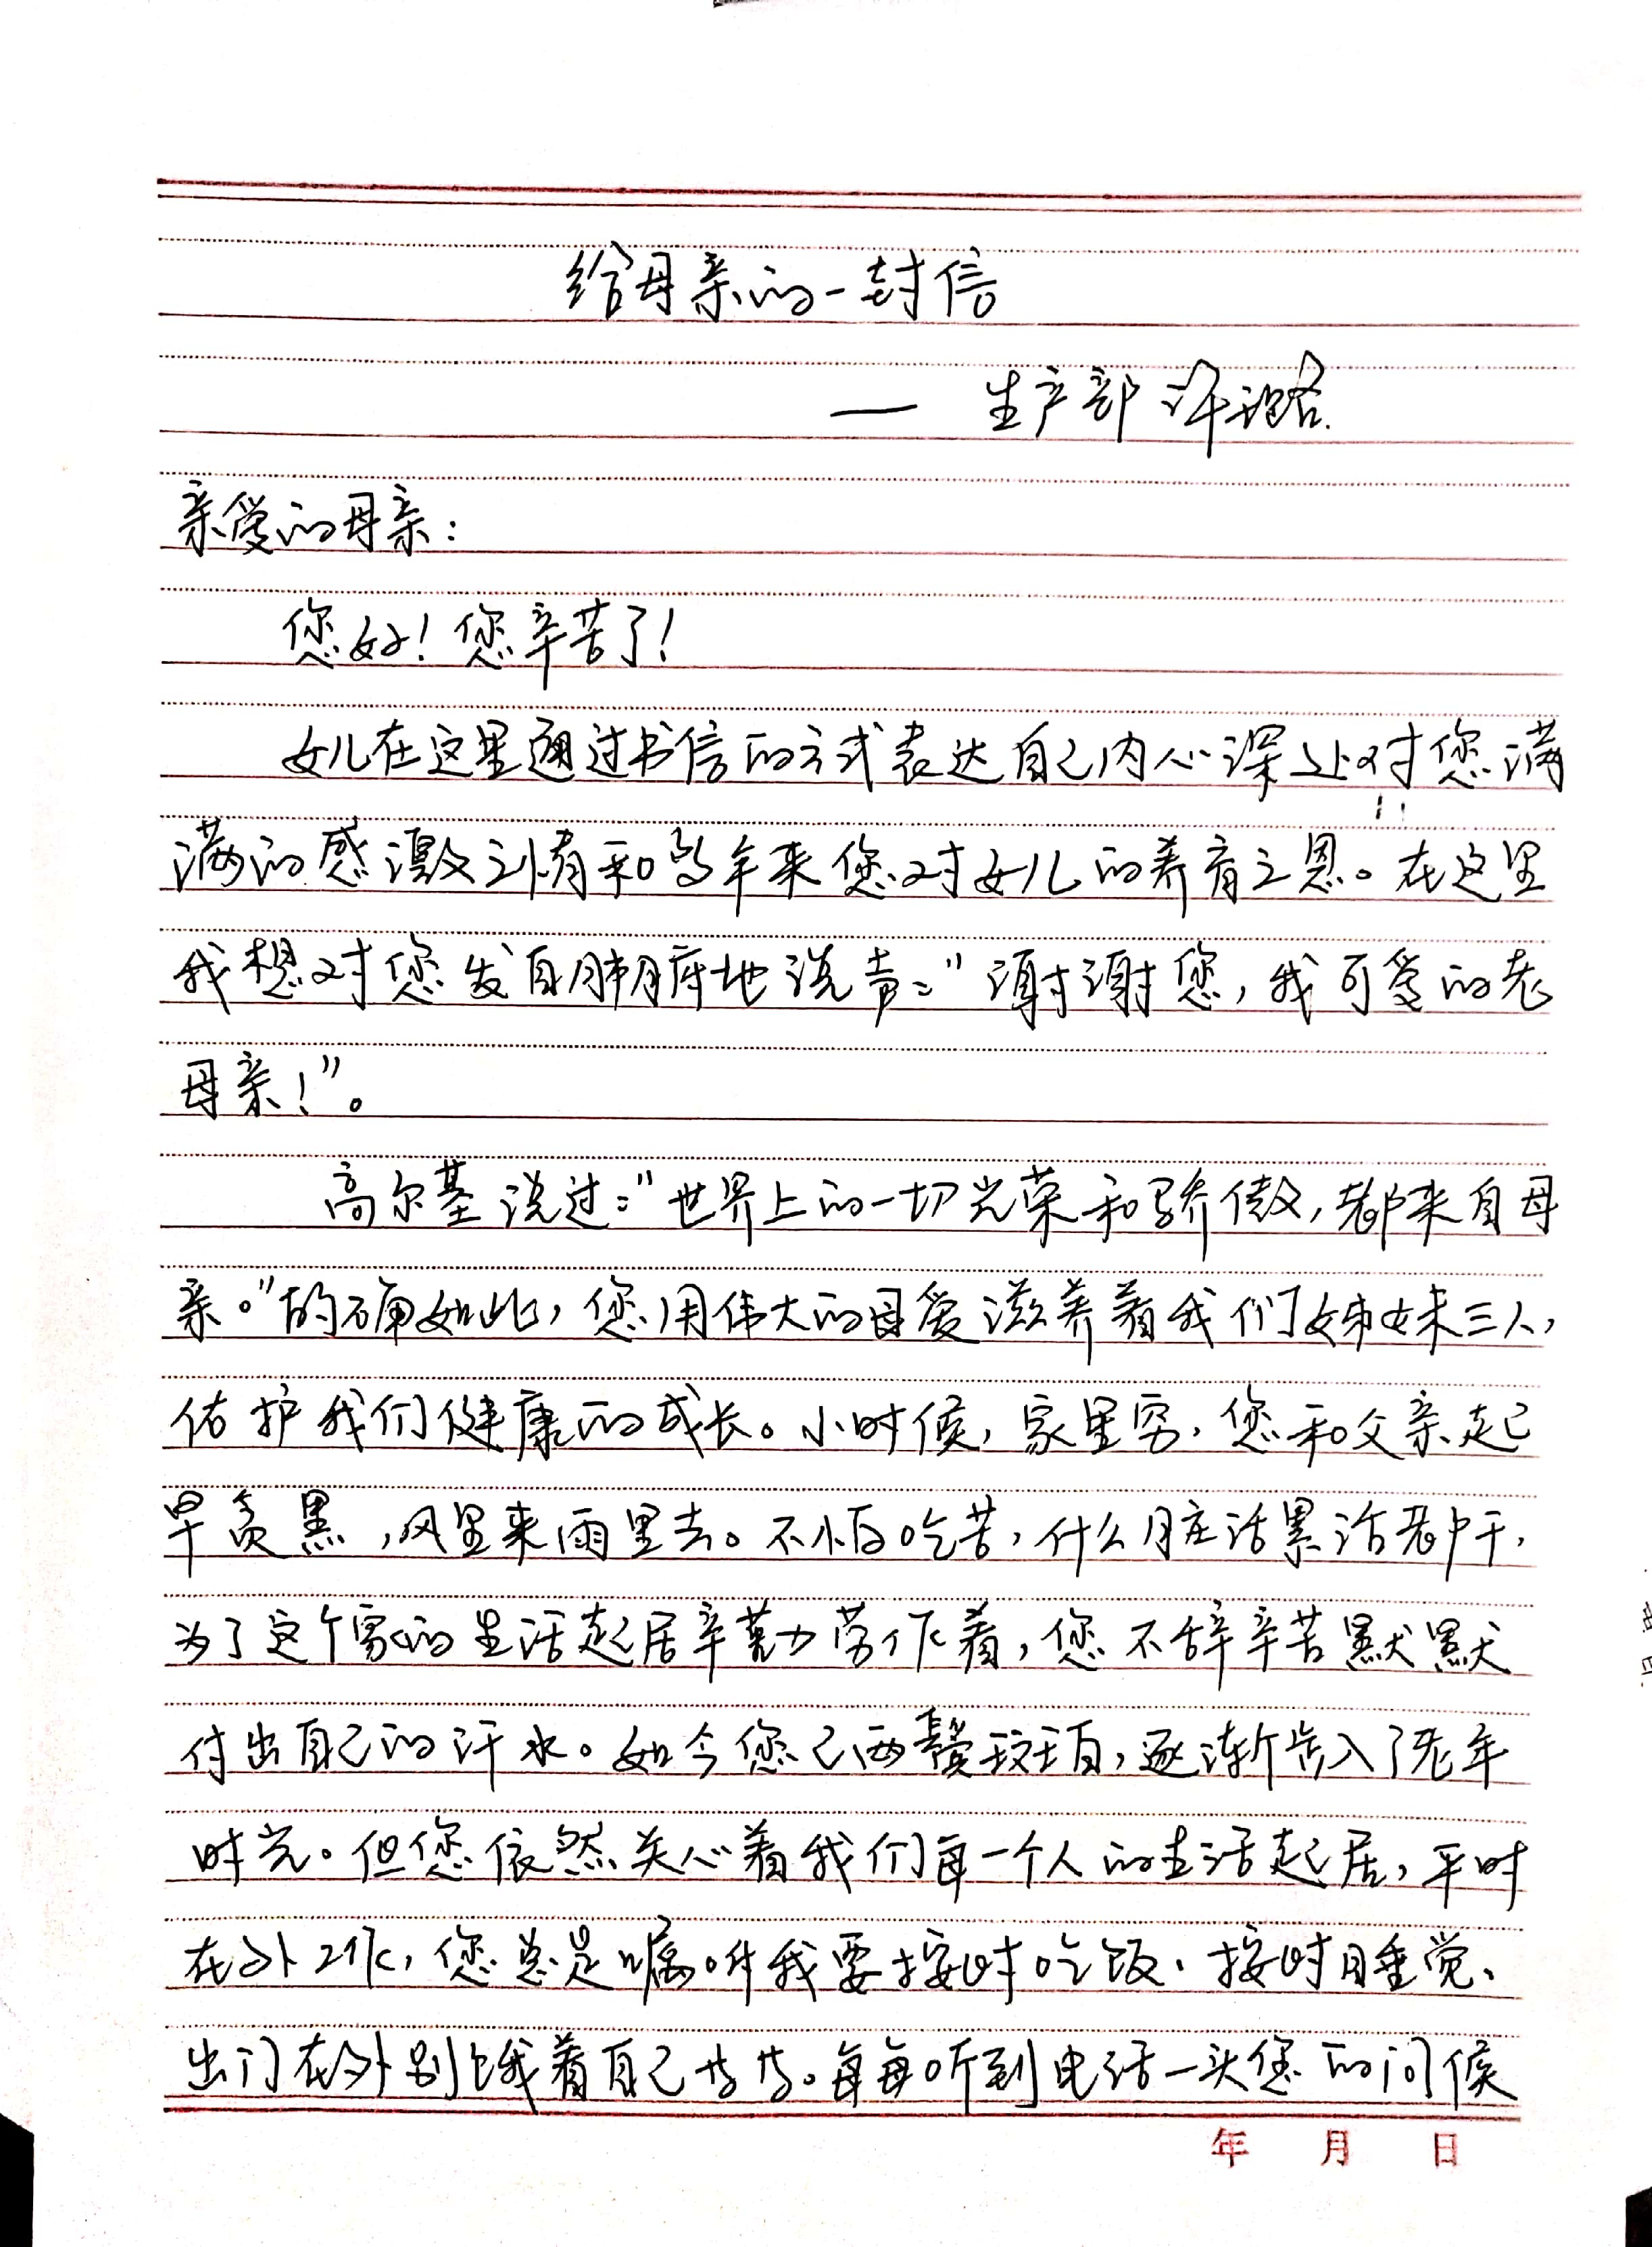 给母亲的一封信
—— 生产部 许
亲爱的母亲：
您好！您辛苦了！
女儿在这里通过书信的方式表达自己内心深处对您满
满的感激之情和多年来您对女儿的养育之恩。在这里
我想对您发自肺腑地说声：“谢谢您，我可爱的老
母亲！”。
高尔基说过：“世界上的一切光荣和骄傲，都来自母
亲。”的确如此，您用伟大的母爱滋养着我们姊妹三人，
佑护我们健康的成长。小时候，家里穷，您和父亲起
早贪黑，风里来雨里去。不怕吃苦，什么脏活累活都干，
为了这个家的生活起居辛勤劳作着，您不辞辛苦默默
付出自己的汗水。如今您已两鬓斑白，逐渐步入了老年
时光。但您依然关心着我们每一个人的生活起居，平时
在外工作，您总是嘱咐我要按时吃饭、按时睡觉、
出门在外别饿着自己等等。每每听到电话一头您的问候
年 月 日